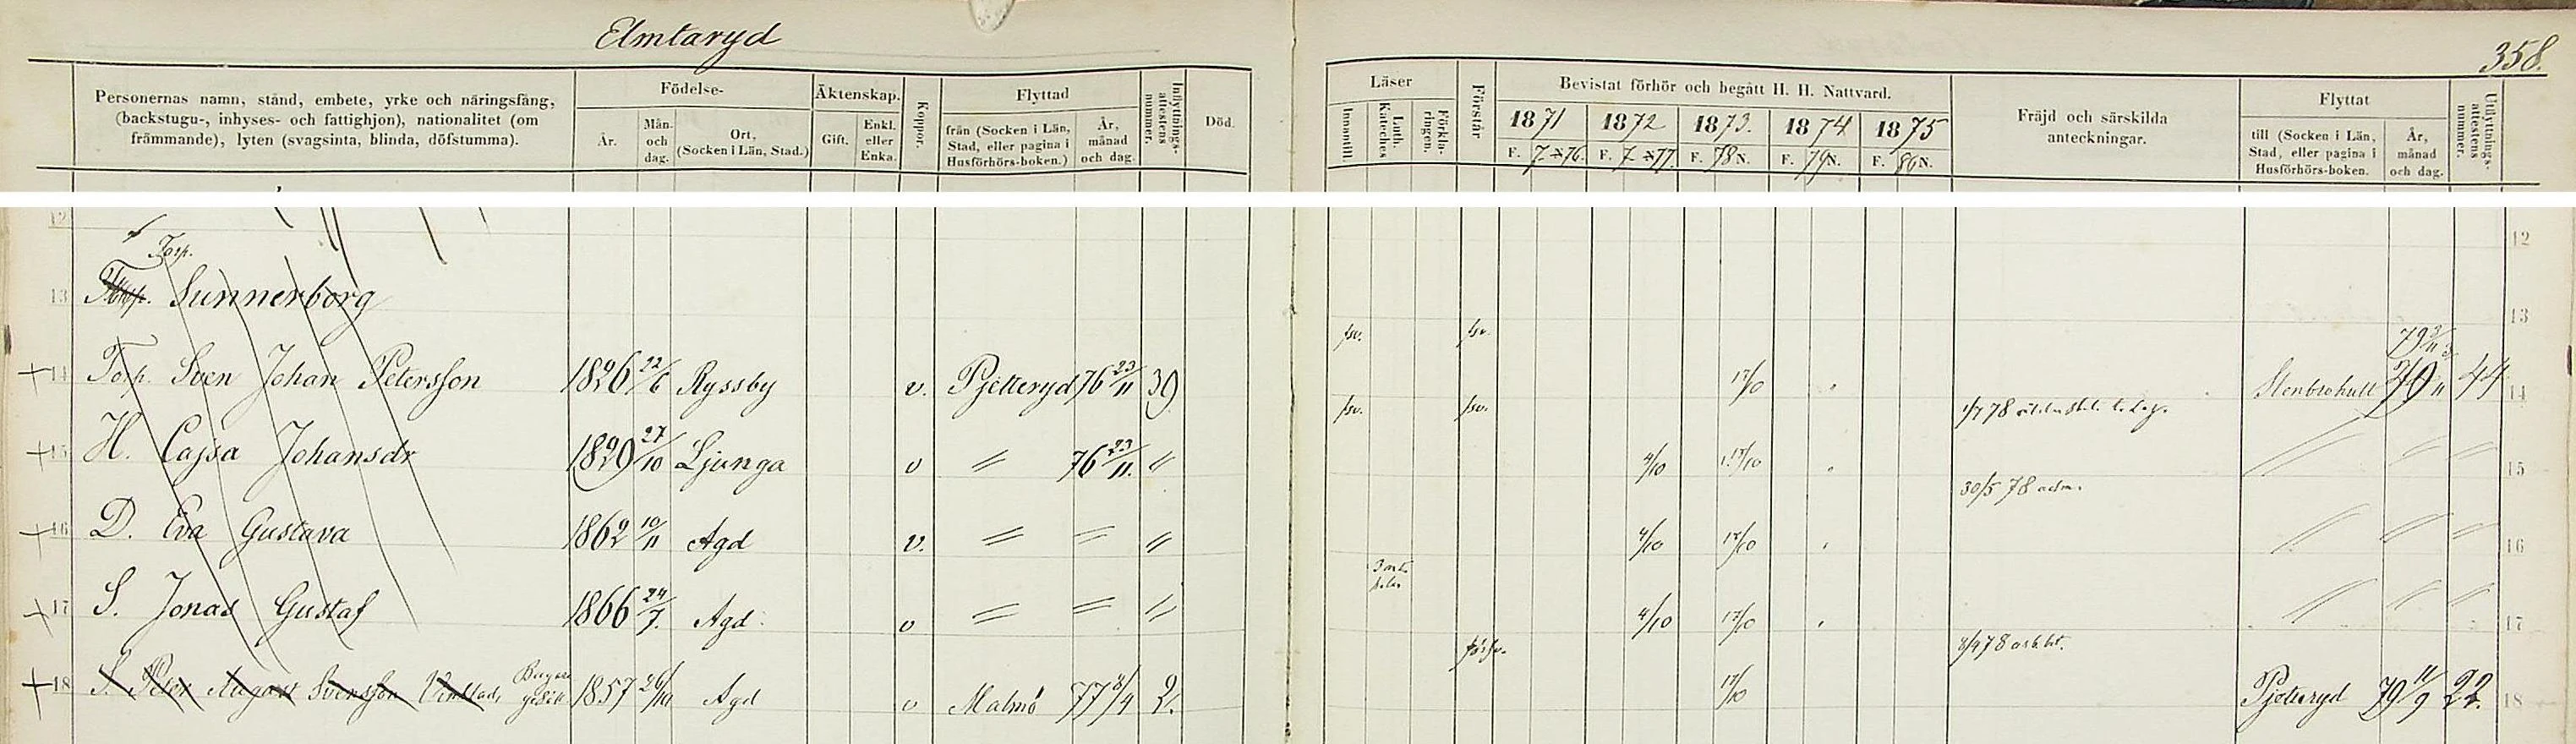 Elmtaryd
358.
Personernas namn, stånd, embete, yrke och näringsfång, (backstugu-, inhyses- och fattighjon), nationalitet (om främmande), lyten (svagsinta, blinda, döfstumma).
Födelse-
År.
Mån. och dag.
Ort, (Socken i Län, Stad.)
Äktenskap.
Gift.
Enkl. eller Enka.
Koppor.
Flyttad
från (Socken i Län, Stad, eller pagina i Husförhörs-boken.)
År, månad och dag.
Inflyttnings-attestens nummer.
Död.
Läser
Innantill.
Luth. Kateches
Förkla-ringen.
Förstår
Bevistat förhör och begått H. H. Nattvard.
1871 1872 1873. 1874 1875
F. 7 76. F. 7 77. F. 78 N. F. 79 N. F. 80 N.
Fräjd och särskilda anteckningar.
Flyttat
till (Socken i Län, Stad, eller pagina i Husförhörs-boken.
År, månad och dag.
Utflyttnings-attestens nummer.
12 12
Torp.
13 Sunnerborg 13
14 Torp. Sven Johan Petersson 1826 22/6 Ryssby v. Pjetteryd 76 23/11 39 17/10 Stenbrohult 79 11 44 14
1/7 78
15 H. Cajsa Johansdr 1829 27/10 Ljunga v " 76 23/11. " 4/10 17/10 " " " 15
30/5 78 adm.
16 D. Eva Gustava 1862 10/11 Agd v. " " " 4/10 17/10 " " " 16
17 S. Jonas Gustaf 1866 24/7. Agd v " " " 4/10 17/10 " " " 17
18 S. Peter August Svensson 1857 26/10 Agd v Malmö 77 8/9 2. 17/10 Pjeteryd 79 11/9 22. 18